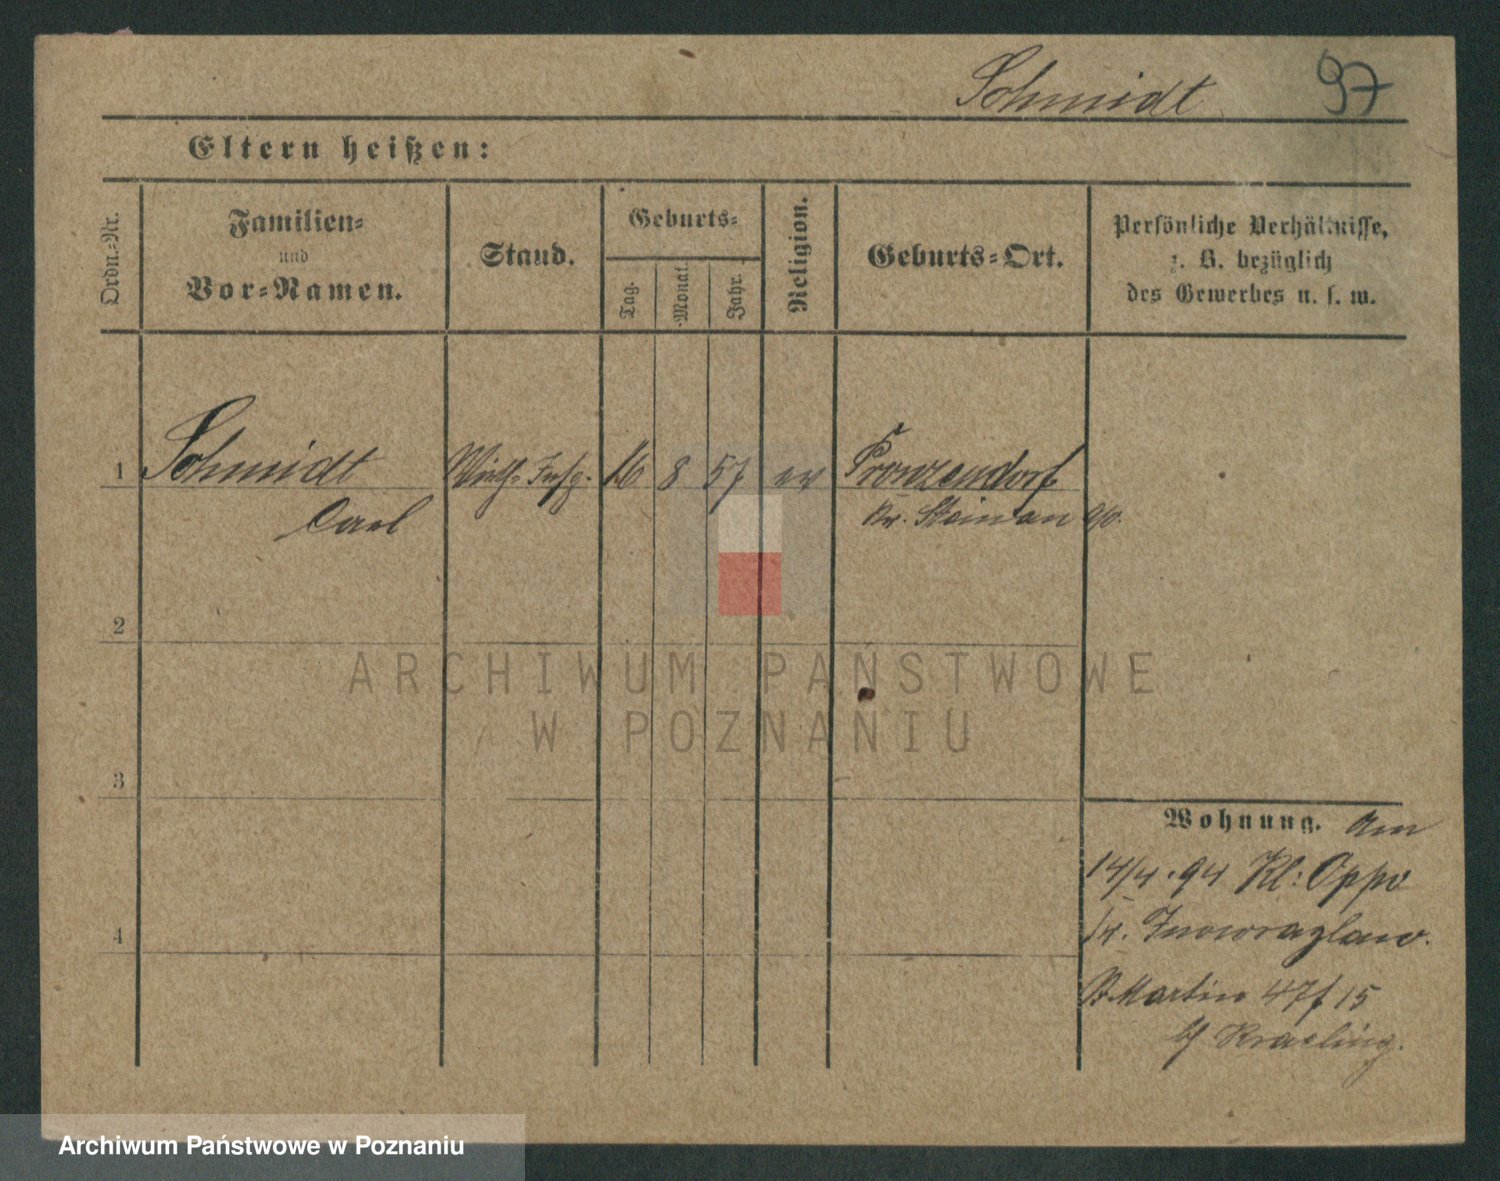 Schmidt 97
Eltern heißen:
Ordn.-Nr.
Familien-
und
Vor-Namen.
Stand.
Geburts-
Tag.
Monat.
Jahr.
Religion.
Geburts-Ort.
Persönliche Verhältnisse,
z. B. bezüglich
des Gewerbes u. s. w.
1 Schmidt Wirth. Insp. 16 8 57 ev Pronzendorf
Carl Kr. Steinau a/O.
2
ARCHIWUM PAŃSTWOWE
W POZNANIU
3
Wohnung. Am
14/4.94 Kl: Oppo
Kr. Inowrazlaw.
4
St Martin 47 15
Kraeling.
Archiwum Państwowe w Poznaniu